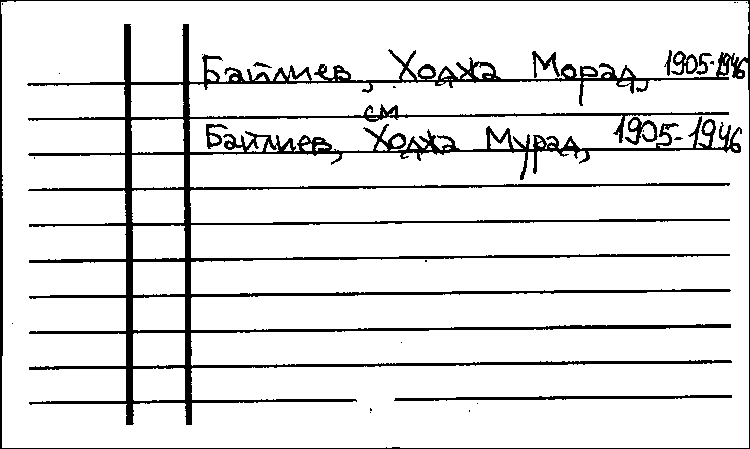 Байлиев, Ходжа Морад, 1905-1946
см
Байлиев, Ходжа Мурад, 1905-1946